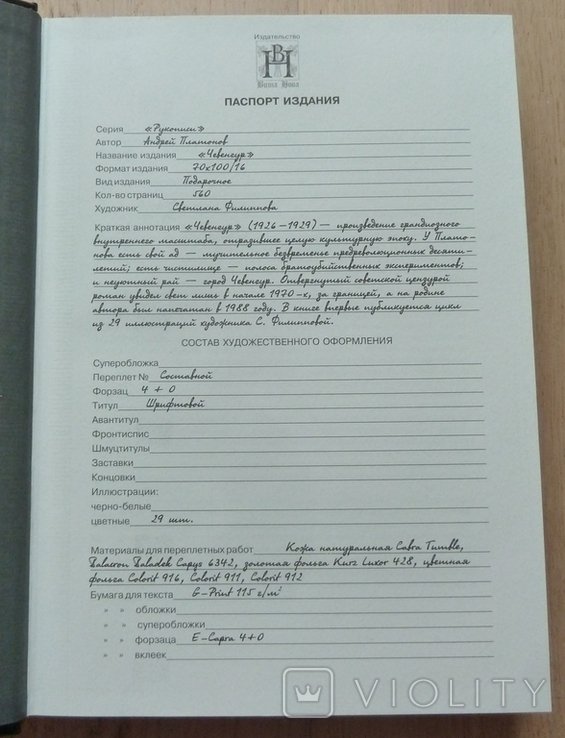 Издательство
ВН
Вита Нова
ПАСПОРТ ИЗДАНИЯ
Серия «Рукописи»
Автор Андрей Платонов
Название издания «Чевенгур»
Формат издания 70х100/16
Вид издания Подарочное
Кол-во страниц 560
Художник Светлана Филиппова
Краткая аннотация «Чевенгур» (1926–1929) — произведение грандиозного
внутреннего масштаба, отразившее целую культурную эпоху. У Плато-
нова есть свой ад — мучительное безвременье предреволюционных десяти-
летий; есть чистилище — полоса братоубийственных экспериментов;
и неуютный рай — город Чевенгур. Отвергнутый советской цензурой
роман увидел свет лишь в начале 1970-х, за границей, а на родине
автора был напечатан в 1988 году. В книге впервые публикуется цикл
из 29 иллюстраций художника С. Филипповой.
СОСТАВ ХУДОЖЕСТВЕННОГО ОФОРМЛЕНИЯ
Суперобложка
Переплет № Составной
Форзац 4 + 0
Титул Шрифтовой
Авантитул
Фронтиспис
Шмуцтитулы
Заставки
Концовки
Иллюстрации:
черно-белые
цветные 29 шт.
Материалы для переплетных работ Кожа натуральная Cabra Tumble,
Balacron Baladek Capys 6342, золотая фольга Kurz Luxor 428, цветная
фольга Colorit 916, Colorit 911, Colorit 912
Бумага для текста G-Print 115 г/м²
» » обложки
» » суперобложки
» » форзаца E-Carta 4+0
» » вклеек
VIOLITY